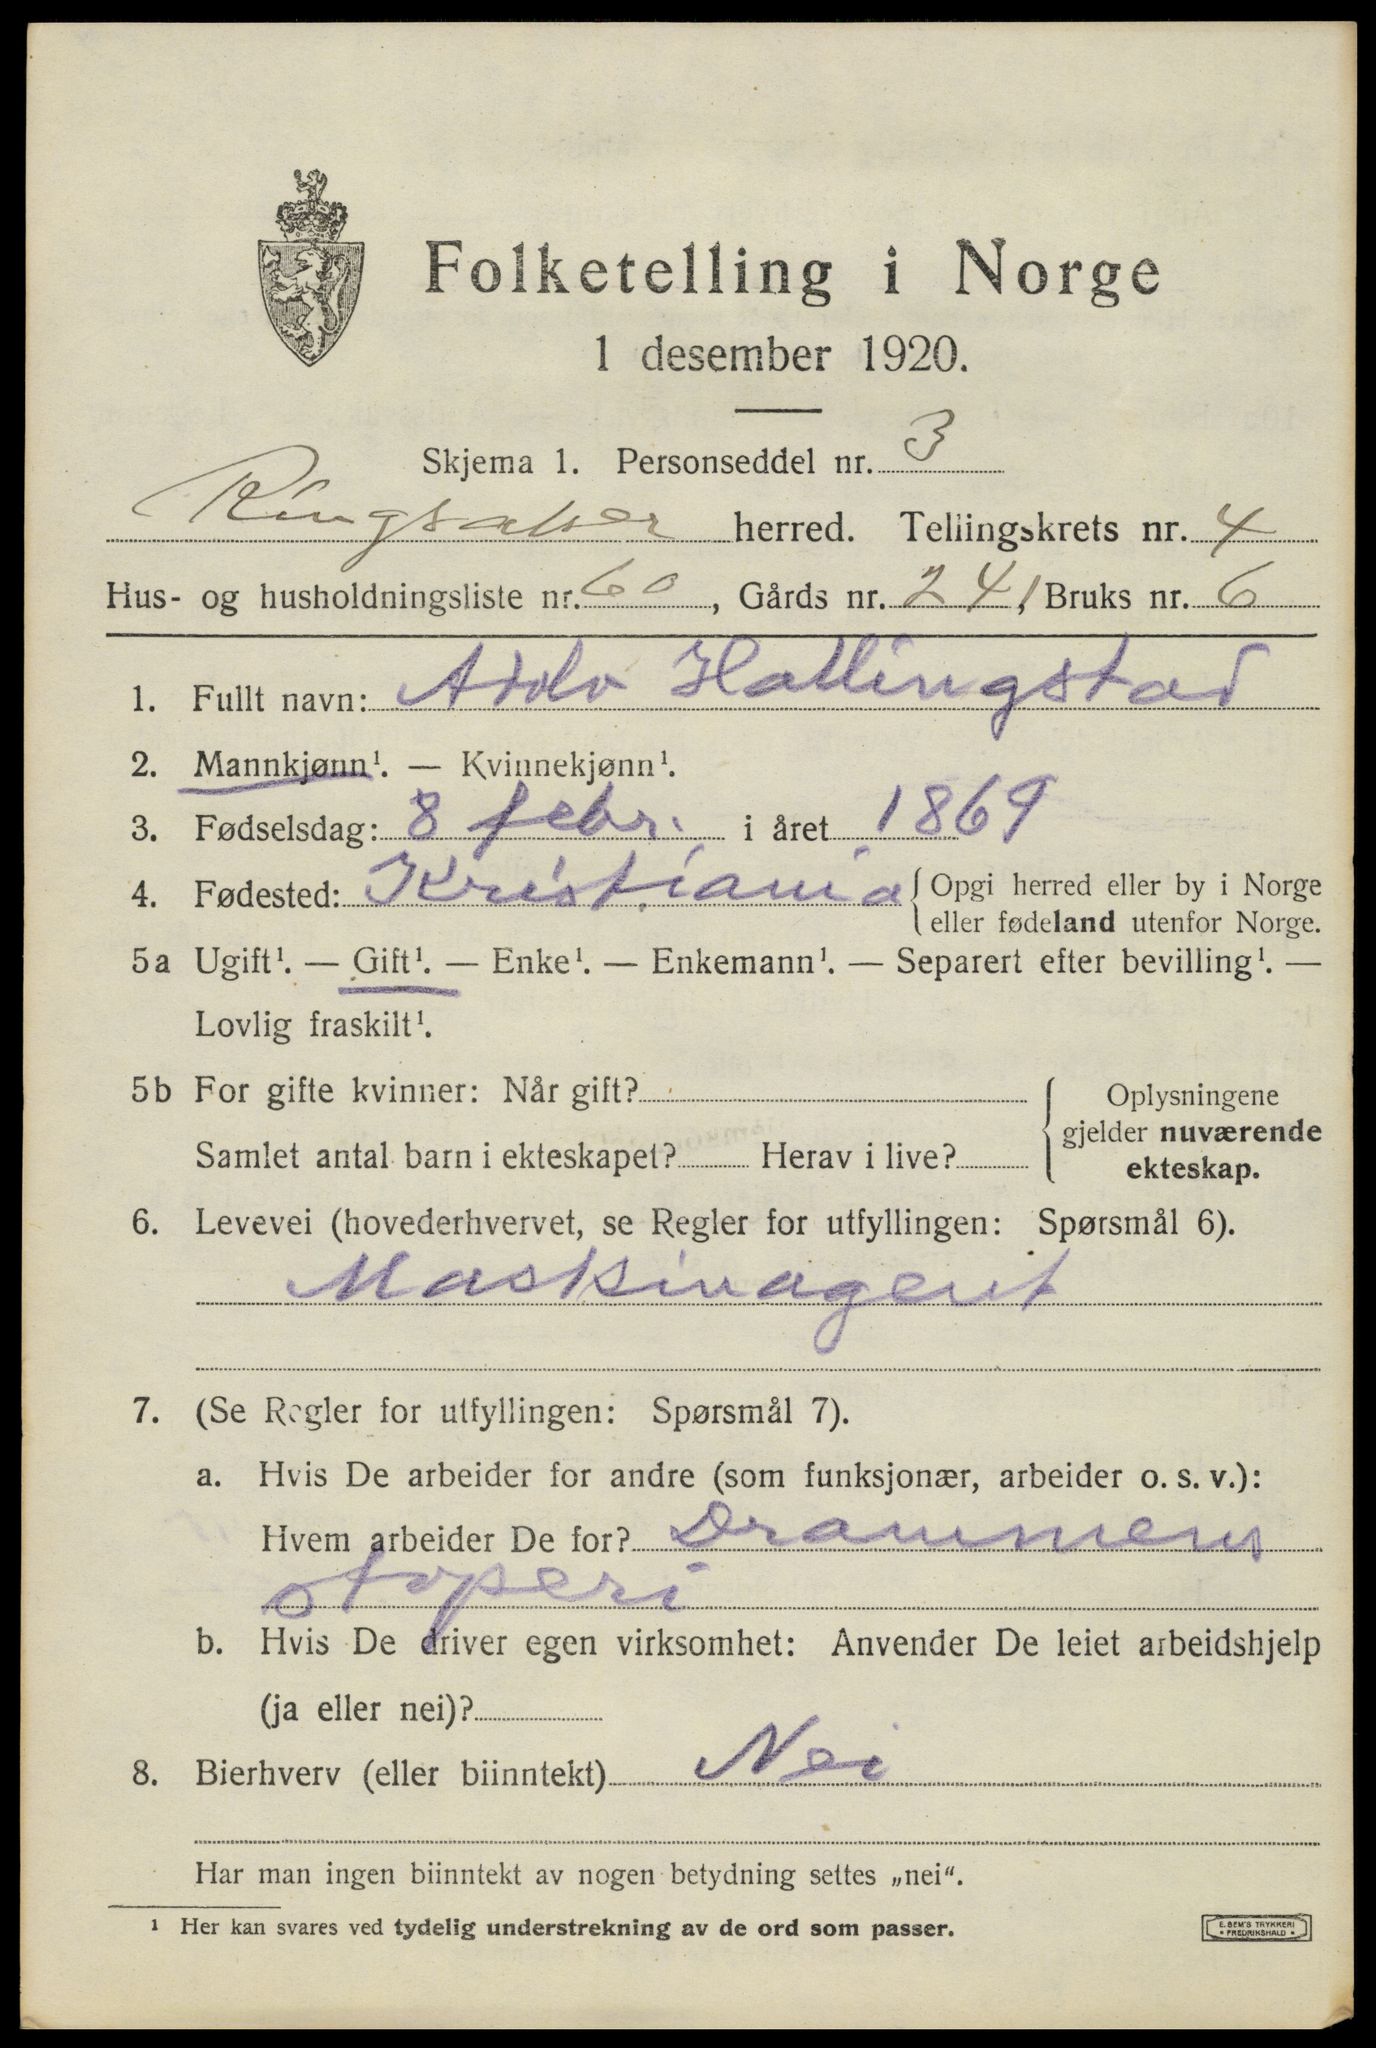 Folketelling i Norge
1 desember 1920.
Skjema 1. Personseddel nr. 3
Ringsaker herred. Tellingskrets nr. 4
Hus- og husholdningsliste nr. 60, Gårds nr. 241, Bruks nr. 6
1. Fullt navn: Hallingstad
2. Mannkjønn¹. — Kvinnekjønn¹.
3. Fødselsdag: 8 febr. i året 1869
4. Fødested: Kristiania { Opgi herred eller by i Norge
eller fødeland utenfor Norge.
5a Ugift¹. — Gift¹. — Enke¹. — Enkemann¹. — Separert efter bevilling¹. —
Lovlig fraskilt¹.
5b For gifte kvinner: Når gift? { Oplysningene
gjelder nuværende
Samlet antal barn i ekteskapet? Herav i live? ekteskap.
6. Levevei (hovederhvervet, se Regler for utfyllingen: Spørsmål 6).
Maskinagent
7. (Se Regler for utfyllingen: Spørsmål 7).
a. Hvis De arbeider for andre (som funksjonær, arbeider o. s. v.):
Hvem arbeider De for? Drammens
støperi
b. Hvis De driver egen virksomhet: Anvender De leiet arbeidshjelp
(ja eller nei)?
8. Bierhverv (eller biinntekt) Nei
Har man ingen biinntekt av nogen betydning settes „nei“.
¹ Her kan svares ved tydelig understrekning av de ord som passer.
E. SEM'S TRYKKERI
• FREDRIKSHALD •